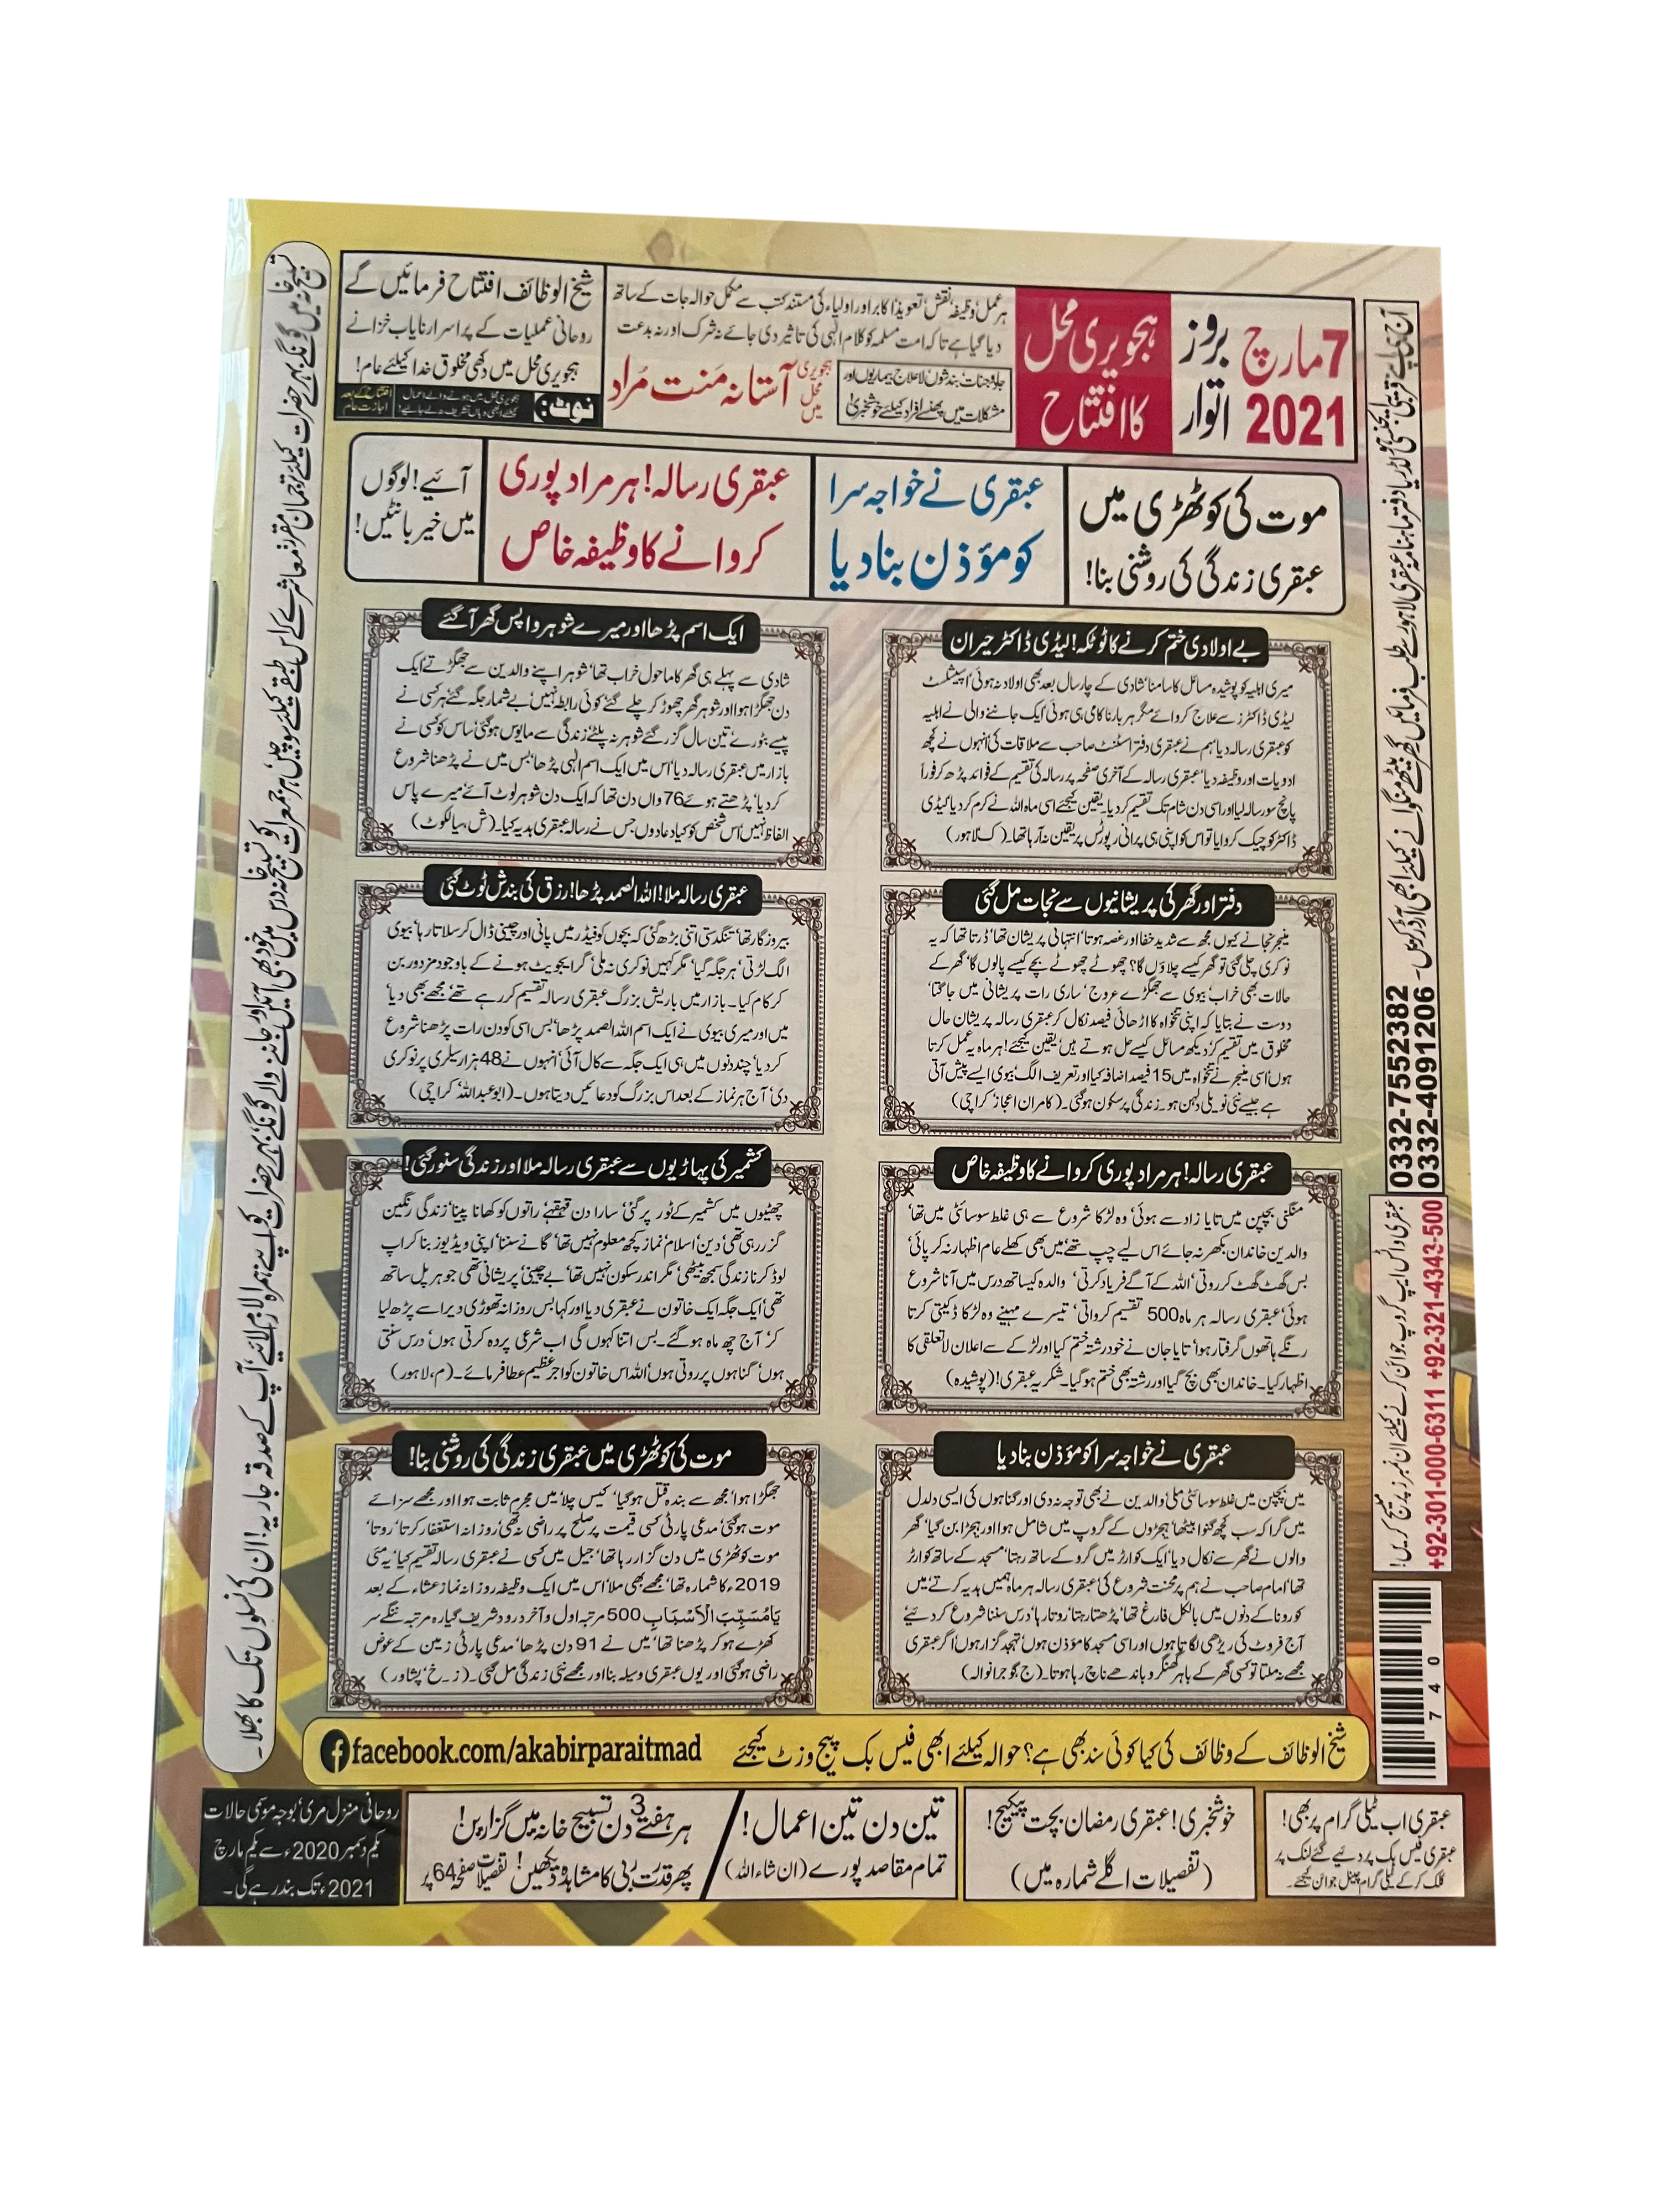 7 مارچ 2021
بروز اتوار
ہجویری محل کا افتتاح
ہر عمل وظیفہ نقش تعویذ اکابر اور اولیاء کی مستند کتب سے مکمل حوالہ جات کے ساتھ
دیا گیا ہے تاکہ امت مسلمہ کو کلام الٰہی کی تاثیر دی جائے نہ شرک اور نہ بدعت
جادو جنات، بندشوں لاعلاج بیماریوں اور
مشکلات میں پھنسے افراد کیلئے خوشخبری!
ہجویری محل میں آستانہ مَنت مُراد
شیخ الوظائف افتتاح فرمائیں گے
روحانی عملیات کے پراسرار نایاب خزانے
ہجویری محل میں دکھی مخلوق خدا کیلئے عام!
نوٹ:
افتتاح کے بعد اجازت عام
موت کی کوٹھڑی میں
عبقری زندگی کی روشنی بنا!
عبقری نے خواجہ سرا
کو مؤذن بنا دیا
عبقری رسالہ! ہر مراد پوری
کروانے کا وظیفہ خاص
آئیے! لوگوں
میں خیر بانٹیں!
بے اولادی ختم کرنے کا ٹوٹکہ! لیڈی ڈاکٹر حیران
میری اہلیہ کو پوشیدہ مسائل کا سامنا‘ شادی کے چار سال بعد بھی اولاد نہ ہوئی‘ اسپیشلسٹ
لیڈی ڈاکٹرز سے علاج کروائے مگر ہر بار ناکامی ہی ہوئی ایک جاننے والی نے اہلیہ
کو عبقری رسالہ دیا‘ ہم نے عبقری دفتر اسسٹنٹ صاحب سے ملاقات کی‘ انہوں نے کچھ
ادویات اور وظیفہ دیا‘ عبقری رسالہ کے آخری صفحہ پر رسالہ کی تقسیم کے فوائد پڑھ کر فوراً
پانچ سو رسالہ لیا اور اسی دن شام تک تقسیم کردیا۔ یقین کیجئے اسی ماہ اللہ نے کرم کردیا‘ لیڈی
ڈاکٹر کو چیک کروایا تو اس کو اپنی ہی پرانی رپورٹس پر یقین نہ آرہا تھا۔ (ک‘ لاہور)
ایک اسم پڑھا اور میرے شوہر واپس گھر آگئے
شادی سے پہلے ہی گھر کا ماحول خراب تھا‘ شوہر اپنے والدین سے جھگڑتے‘ ایک
دن جھگڑا ہوا اور شوہر گھر چھوڑ کر چلے گئے‘ کوئی رابطہ نہیں‘ بے شمار جگہ گئے‘ ہر کسی نے
پیسے بٹورے‘ تین سال گزر گئے شوہر نہ پلٹے‘ زندگی سے مایوس ہوگئی‘ ساس کو کسی نے
بازار میں عبقری رسالہ دیا‘ اس میں ایک اسم الٰہی پڑھا‘ بس میں نے پڑھنا شروع
کردیا‘ پڑھتے ہوئے 76 واں دن تھا کہ ایک دن شوہر لوٹ آئے‘ میرے پاس
الفاظ نہیں‘ اس شخص کو کیا دعا دوں جس نے رسالہ عبقری ہدیہ کیا۔ (ش، سیالکوٹ)
دفتر اور گھر کی پریشانیوں سے نجات مل گئی
منیجر نجانے کیوں مجھ سے شدید خفا اور غصہ ہوتا‘ انتہائی پریشان تھا‘ ڈرتا تھا کہ یہ
نوکری چلی گئی تو گھر کیسے چلاؤں گا؟ چھوٹے چھوٹے بچے کیسے پالوں گا‘ گھر کے
حالات بھی خراب‘ بیوی سے جھگڑے عروج‘ ساری رات پریشانی میں جاگتا‘
دوست نے بتایا کہ اپنی تنخواہ کا اڑھائی فیصد نکال کر عبقری رسالہ پریشان حال
مخلوق میں تقسیم کر‘ دیکھ مسائل کیسے حل ہوتے ہیں‘ یقین کیجئے! ہر ماہ یہ عمل کرتا
ہوں‘ اسی منیجر نے تنخواہ میں 15 فیصد اضافہ کیا اور تعریف الگ‘ بیوی ایسے پیش آتی
ہے جیسے نئی نویلی دلہن ہو۔ زندگی پرسکون ہوگئی۔ (کامران اعجاز‘ کراچی)
عبقری رسالہ ملا! اللہ الصمد پڑھا! رزق کی بندش ٹوٹ گئی
بیروزگار تھا‘ تنگدستی اتنی بڑھ گئی کہ بچوں کو فیڈر میں پانی اور چینی ڈال کر سلاتا رہا‘ بیوی
الگ لڑتی‘ ہر جگہ گیا‘ مگر کہیں نوکری نہ ملی‘ گرایجویٹ ہونے کے باوجود مزدور بن
کر کام کیا۔ بازار میں باریش بزرگ عبقری رسالہ تقسیم کررہے تھے‘ مجھے بھی دیا‘
میں اور میری بیوی نے ایک اسم اللہ الصمد پڑھا‘ بس اسی کو دن رات پڑھنا شروع
کردیا‘ چند دنوں میں ہی ایک جگہ سے کال آئی‘ انہوں نے 48 ہزار سیلری پر نوکری
دی‘ آج ہر نماز کے بعد اس بزرگ کو دعائیں دیتا ہوں۔ (ابو عبداللہ‘ کراچی)
عبقری رسالہ! ہر مراد پوری کروانے کا وظیفہ خاص
منگنی بچپن میں تایا زاد سے ہوئی‘ وہ لڑکا شروع سے ہی غلط سوسائٹی میں تھا‘
والدین خاندان بکھر نہ جائے اس لیے چپ تھے‘ میں بھی کھلے عام اظہار نہ کر پائی‘
بس گھٹ گھٹ کر روتی‘ اللہ کے آگے فریاد کرتی‘ والدہ کیساتھ درس میں آنا شروع
ہوئی‘ عبقری رسالہ ہر ماہ 500 تقسیم کرواتی‘ تیسرے مہینے وہ لڑکا ڈکیتی کرتا
رنگے ہاتھوں گرفتار ہوا‘ تایا جان نے خود رشتہ ختم کیا اور لڑکے سے اعلان لاتعلقی کا
اظہار کیا۔ خاندان بھی بچ گیا اور رشتہ بھی ختم ہوگیا۔ شکریہ عبقری! (پوشیدہ)
کشمیر کی پہاڑیوں سے عبقری رسالہ ملا اور زندگی سنور گئی!
چھٹیوں میں کشمیر کے ٹور پر گئی‘ سارا دن قہقہے‘ راتوں کو کھانا پینا‘ زندگی رنگین
گزر رہی تھی‘ دین‘ اسلام‘ نماز کچھ معلوم نہیں تھا‘ گانے سننا‘ اپنی ویڈیوز بنا کر اپ
لوڈ کرنا زندگی سمجھ بیٹھی‘ مگر اندر سکون نہیں تھا‘ بے چینی‘ پریشانی تھی جو ہر پل ساتھ
تھی‘ ایک جگہ ایک خاتون نے عبقری دیا اور کہا بس روزانہ تھوڑی دیر اسے پڑھ لیا
کر‘ آج چھ ماہ ہوگئے۔ بس اتنا کہوں گی اب شرعی پردہ کرتی ہوں‘ درس سنتی
ہوں‘ گناہوں پر روتی ہوں‘ اللہ اس خاتون کو اجر عظیم عطا فرمائے۔ (م، لاہور)
عبقری نے خواجہ سرا کو مؤذن بنا دیا
میں بچپن میں غلط سوسائٹی ملی‘ والدین نے بھی توجہ نہ دی اور گناہوں کی ایسی دلدل
میں گرا کہ سب کچھ گنوا بیٹھا‘ ہیجڑوں کے گروپ میں شامل ہوا اور ہیجڑا بن گیا‘ گھر
والوں نے گھر سے نکال دیا‘ ایک کوارٹر میں گرو کے ساتھ رہتا‘ مسجد کے ساتھ کوارٹر
تھا‘ امام صاحب نے ہم پر محنت شروع کی‘ عبقری رسالہ ہر ماہ ہمیں ہدیہ کرتے‘ میں
کورونا کے دنوں میں بالکل فارغ تھا‘ پڑھتا رہتا‘ روتا رہا‘ درس سننا شروع کردئیے‘
آج فروٹ کی ریڑھی لگاتا ہوں اور اسی مسجد کا مؤذن ہوں‘ تہجد گزار ہوں‘ اگر عبقری
مجھے نہ ملتا تو کسی گھر کے باہر گھنگرو باندھے ناچ رہا ہوتا۔ (ج‘ گوجرانوالہ)
موت کی کوٹھڑی میں عبقری زندگی کی روشنی بنا!
جھگڑا ہوا‘ مجھ سے بندہ قتل ہوگیا‘ کیس چلا‘ میں مجرم ثابت ہوا اور مجھے سزائے
موت ہوگئی‘ مدعی پارٹی کسی قیمت پر صلح پر راضی نہ تھی‘ روزانہ استغفار کرتا‘ روتا‘
موت کوٹھڑی میں دن گزار رہا تھا‘ جیل میں کسی نے عبقری رسالہ تقسیم کیا‘ یہ مئی
2019ء کا شمارہ تھا‘ مجھے بھی ملا‘ اس میں ایک وظیفہ روزانہ نماز عشاء کے بعد
یَامُسَبِّبَ الْاَسْبَابِ 500 مرتبہ اول و آخر درود شریف گیارہ مرتبہ ننگے سر
کھڑے ہوکر پڑھنا تھا‘ میں نے 91 دن پڑھا‘ مدعی پارٹی زمین کے عوض
راضی ہوگئی اور یوں عبقری وسیلہ بنا اور مجھے نئی زندگی مل گئی۔ (ز۔خ‘ پشاور)
شیخ الوظائف کے وظائف کی کیا کوئی سند بھی ہے؟ حوالہ کیلئے ابھی فیس بک پیج وزٹ کیجئے
facebook.com/akabirparaitmad
عبقری اب ٹیلی گرام پر بھی!
عبقری فیس بک پر دئیے گئے لنک پر
کلک کر کے ٹیلی گرام چینل جوائن کیجئے۔
خوشخبری! عبقری رمضان بچت پیکیج!
(تفصیلات اگلے شمارہ میں)
تین دن تین اعمال!
تمام مقاصد پورے (ان شاء اللہ)
ہر ہفتے 3 دن تسبیح خانہ میں گزاریں!
پھر قدرت ربی کا مشاہدہ دیکھیں! تفصیلات صفحہ 64 پر
روحانی منزل مری‘ بوجہ موسمی حالات
یکم دسمبر 2020ء سے یکم مارچ
2021ء تک بند رہے گی۔
آج ہی اپنے قریبی ایجنسی ہولڈر یا دفتر ماہنامہ عبقری لاہور سے طلب فرمائیں گھر بیٹھے منگوانے کیلئے ابھی آرڈر کریں۔
0332-7552382
0332-4091206
عبقری واٹس ایپ گروپ جوائن کرنے کیلئے ان نمبرز پر میسج کریں!
+92-301-000-6311 +92-321-4343-500
7 4 0
تسبیح خانہ میں گونگے بہرے حضرات کیلئے ترجمان مقرر‘ معاشرے کے اس طبقے کیلئے سوچیں‘ ہر جمعرات تسبیح خانہ درس میں خود بھی آئیں اور جاننے والے گونگے بہرے حضرات کو اپنے ہمراہ لازمی لائیے‘ آپ کے صدقہ جاریہ! ان کی نسلوں تک کا بھلا۔